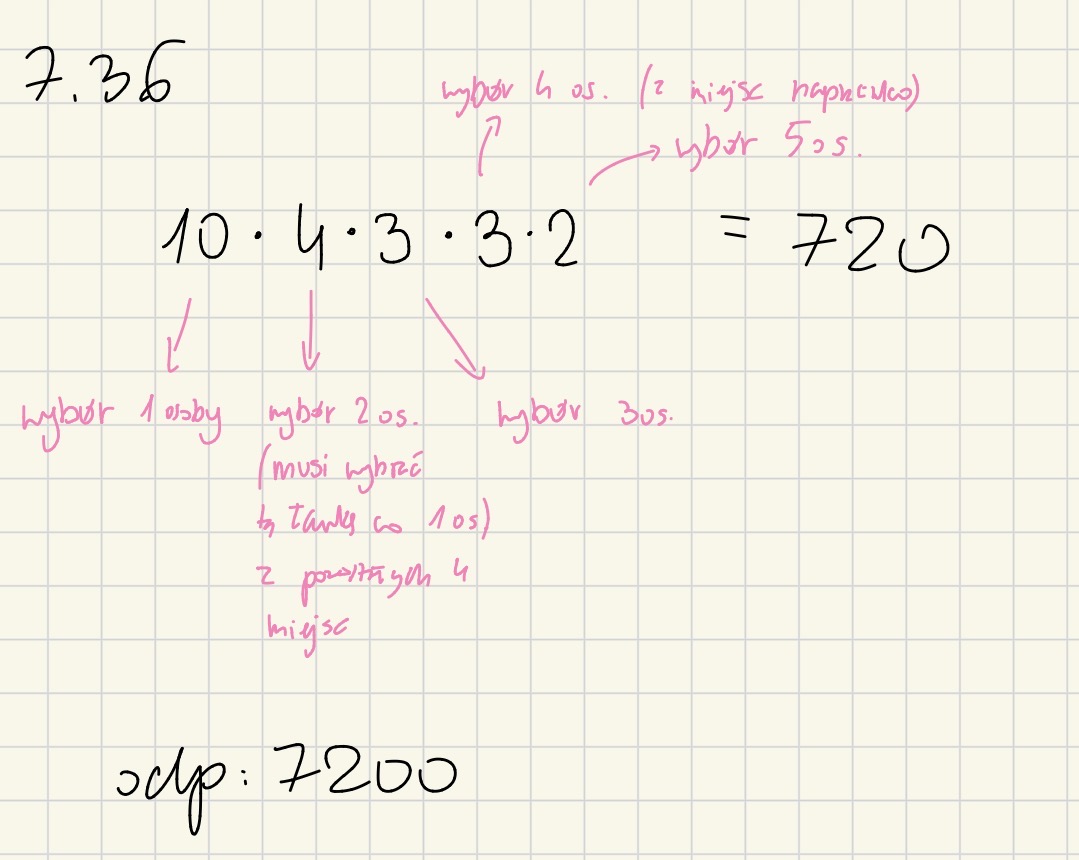 7.36
wybór 4 os. (z miejsc naprzeciwko)
wybór 5 os.
10 · 4 · 3 · 3 · 2 = 720
wybór 1 osoby
wybór 2 os.
(musi wybrać
tą ławkę co 1 os)
z pozostałych 4
miejsc
wybór 3 os.
odp: 7200